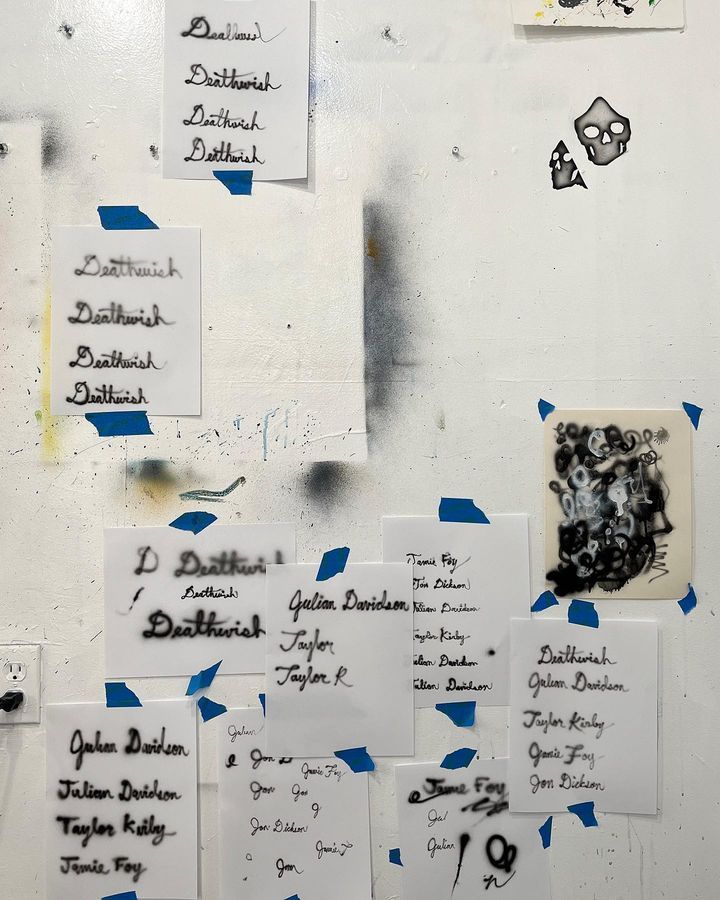 Deathwish
Deathwish
Deathwish
Deathwish
Deathwish
Deathwish
Deathwish
D Deathwish
Deathwish
Deathwish
Julian Davidson
Taylor
Taylor R
Jamie Foy
Jon Dickson
Julian Davidson
Taylor Kirby
Julian Davidson
Julian Davidson
Deathwish
Julian Davidson
Taylor Kirby
Jamie Foy
Jon Dickson
Julian Davidson
Julian Davidson
Taylor Kirby
Jamie Foy
Julian
Jon D
Jamie Foy
Jon
Jon
Jon Dickson
Jamie F
Jon
Jamie Foy
Jul
Julian